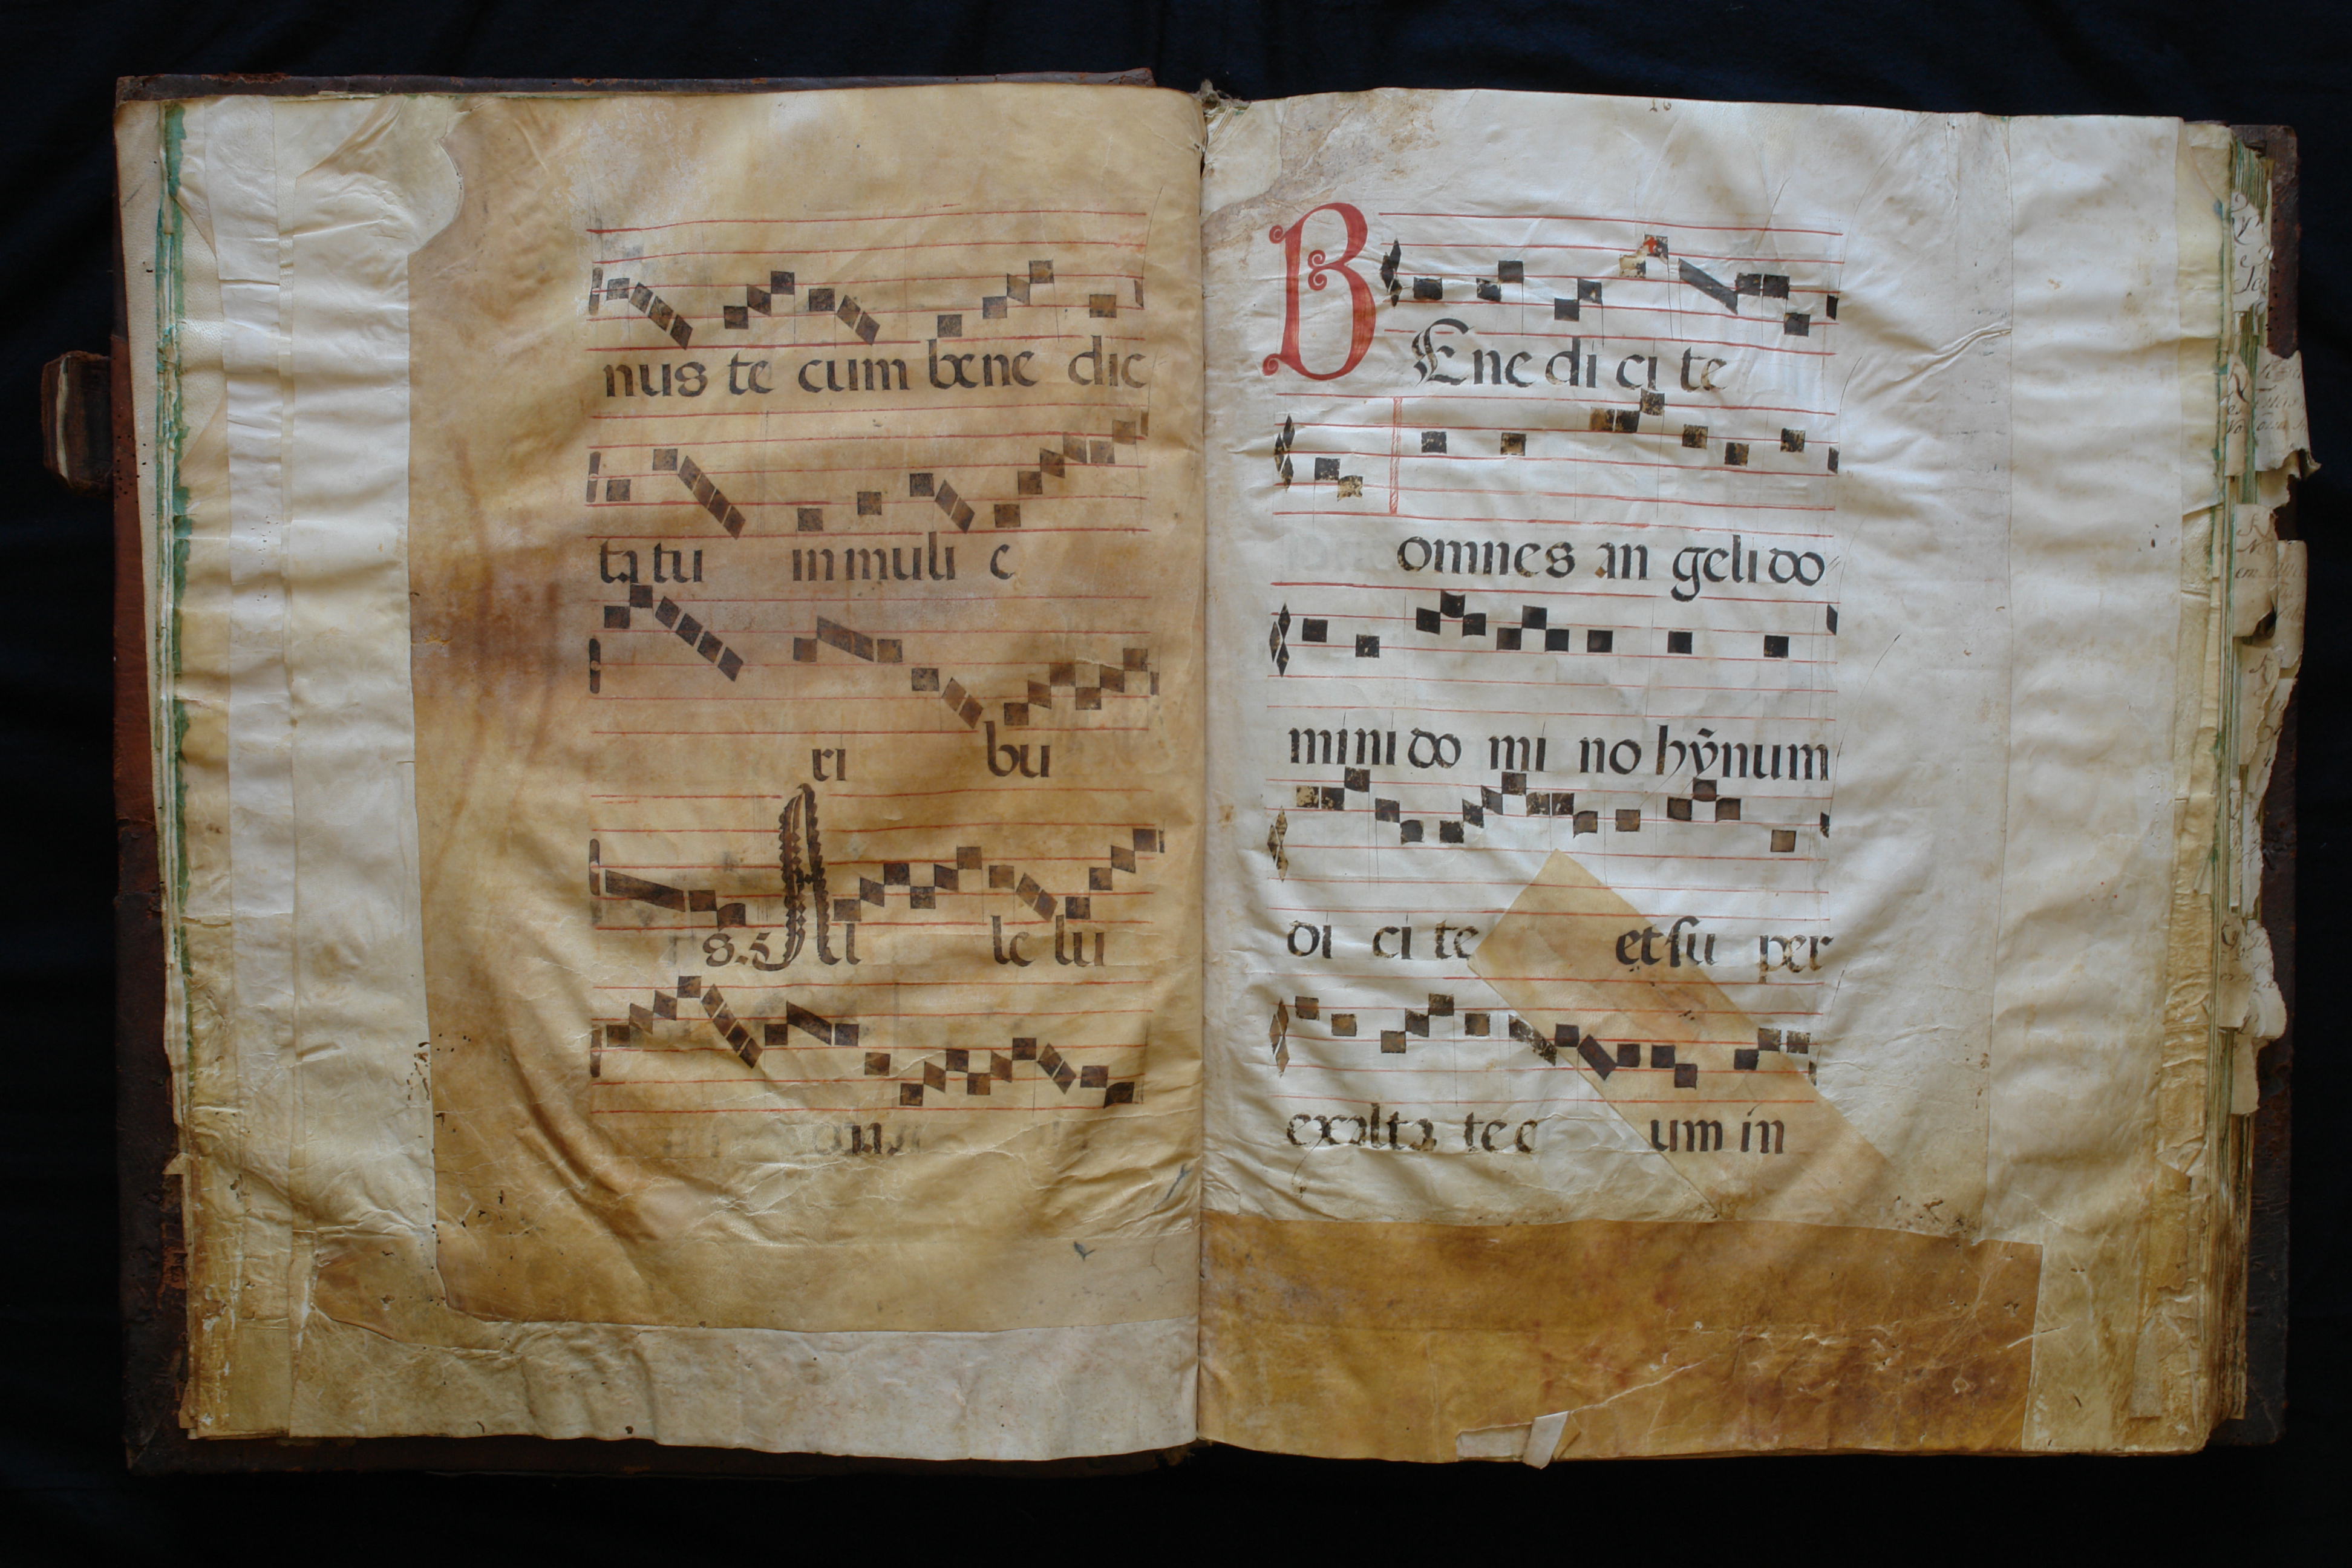 nus te cum bene dic
ta tu in muli e
ri bu
s. Al le lu
16
BEne di ci te
omnes an geli do
mini do mi no hỹnum
di ci te et su per
exalta te e um in